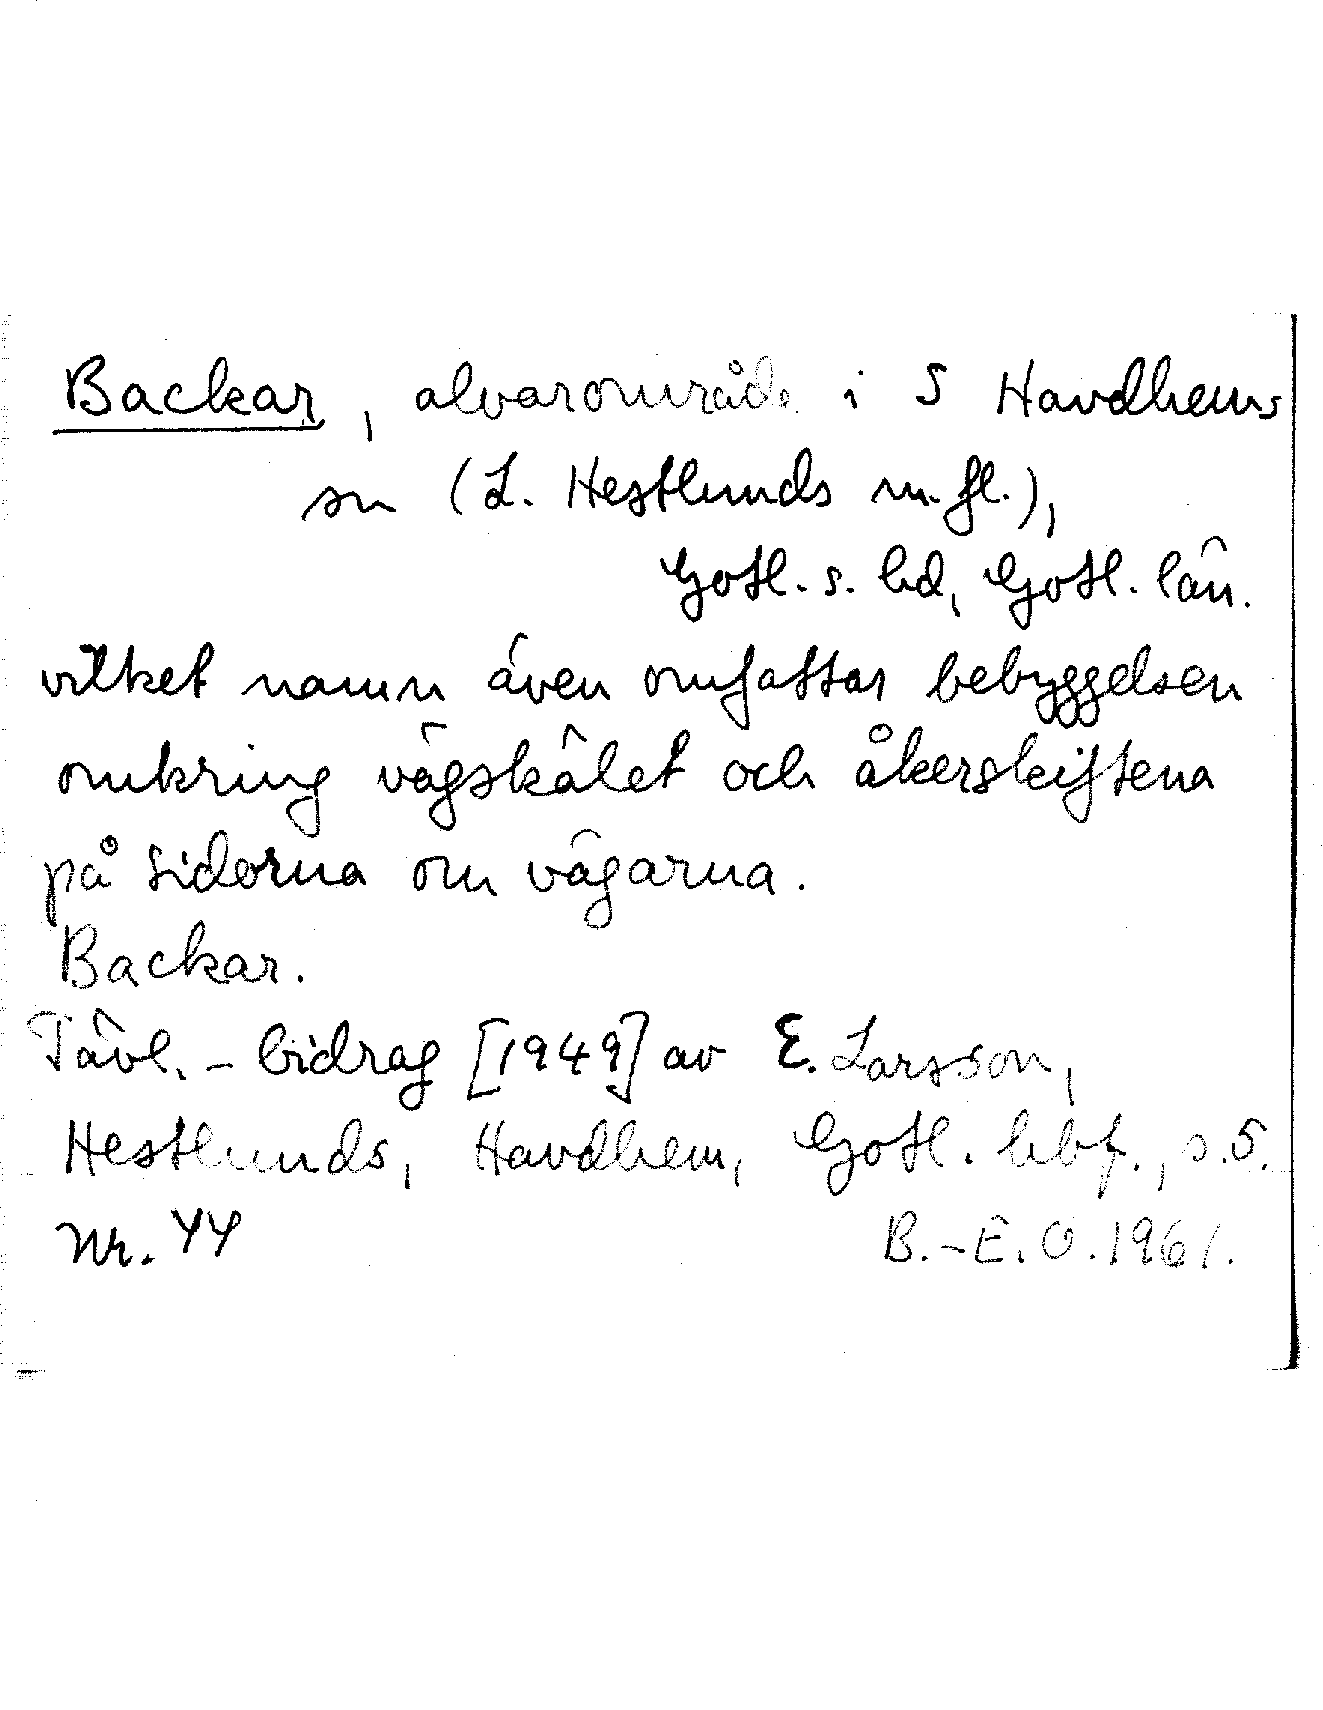 Backar, alvarområde i S Havdhems
sn (L. Hestlunds m.fl.),
Gotl. s. hd, Gotl. län.
vilket namn även omfattar bebyggelsen
omkring vägskälet och åkerskiftena
på sidorna om vägarna.
Backar.
Tävl.-bidrag [1949] av E. Larsson,
Hestlunds, Havdhem, Gotl. hbf., s.5.
Nr. 44 B.-E.O.1961.